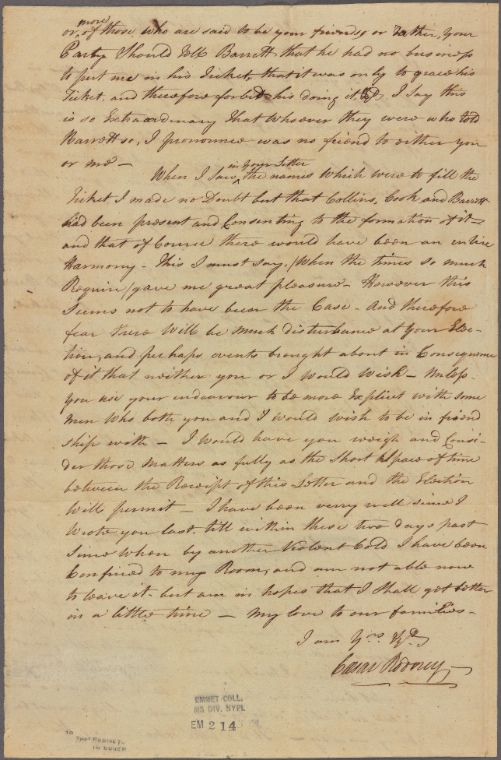 more
or, of those who are said to be your friends, or rather, your
Party Should tell Barrett that he had no business
to put me in his Ticket, that it was only to grace his
Ticket, and therefore forbid his doing it &c, I Say this
is so Extraordinary that whosoever they were who told
Barrett so, I pronounce was no friend to either you
or me —
in your letter
When I Saw, the names which were to fill the
Ticket I made no Doubt but that Collins, Cook and Barrett
had been present and Consenting to the formation of it —
and that of Course there would have been an entire
Harmony — This I must Say, (When the times so much
Require) gave me great pleasure — However this
Seems not to have been the Case — And therefore
fear there will be much disturbance at Your Elec-
tion, and perhaps events brought about in Consequence
of it that neither you or I would wish — Unless
you use your endeavour to be more Explicit with some
men who both you and I would wish to be in friend
ship with — I would have you weigh and Consi-
der those matters as fully as the Short Space of time
between the Receipt of this Letter and the Election
will permit — I have been verry well since I
wrote you last, till within these two days past
Since when by another Violent Cold I have been
Confined to my Room, and am not able now
to leave it. but am in hopes that I Shall get better
in a little time — My love to our families —
I am Yrs. &c
Caesar Rodney
EMMET COLL.
MS DIV. NYPL
EM 214
TO
Thos Rodney,
IN DOVER